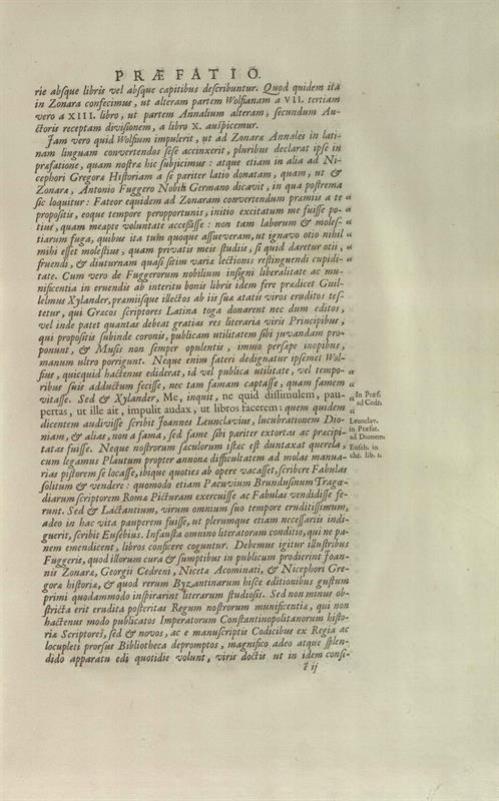 PRÆFATIO.
rie abſque libris vel abſque capitibus deſcribuntur. Quod quidem ita
in Zonara confecimus, ut alteram partem Wolfianam a VII. tertiam
vero a XIII. libro, ut partem Annalium alteram, ſecundum Au-
ctoris receptam diviſionem, a libro X. auſpicemur.
Jam vero quid Wolfium impulerit, ut ad Zonaræ Annales in lati-
nam linguam convertendos ſeſe accinxerit, pluribus declarat ipſe in
præfatione, quam noſtræ hic ſubjicimus: atque etiam in alia ad Ni-
cephori Gregoræ Hiſtoriam a ſe pariter latio donatam, quam, ut &
Zonaræ, Antonio Fuggero Nobili Germano dicavit, in qua poſtrema
ſic loquitur: Fateor equidem ad Zonaram convertendum præmiis a te «
propoſitis, eoque tempore peropportunis, initio excitatum me fuiſſe po- «
tius, quam meapte voluntate acceſſiſſe: non tam laborum & moleſ- «
tiarum fuga, quibus ita tum quoque aſſueveram, ut ignavo otio nihil «
mihi eſſet moleſtius, quam privatis meis ſtudiis, ſi quid daretur otii, «
fruendi, & diuturnam quaſi ſitim variæ lectionis reſtinguendi cupidi- «
tate. Cum vero de Fuggerorum nobilium inſigni liberalitate ac mu-
nificentia in eruendis ab interitu bonis libris idem fere prædicet Guil-
lelmus Xylander, præmiiſque illectos ab iis ſuæ ætatis viros eruditos teſ-
tetur, qui Græcos ſcriptores Latina toga donarent nec dum editos,
vel inde patet quantas debeat gratias res literaria viris Principibus,
qui propoſitis ſubinde coronis, publicam utilitatem ſibi juvandam pro-
ponunt, & Muſis non ſemper opulentis, immo perſæpe inopibus,
manum ultro porrigunt. Neque enim fateri dedignatur ipſemet Wol-
fius, quicquid hactenus ediderat, id vel publica utilitate, vel tempo- «
ribus ſuis adductum feciſſe, nec tam famam captaſſe, quam famem «
vitaſſe. Sed & Xylander, Me, inquit, ne quid diſſimulem, pau- «
pertas, ut ille ait, impulit audax, ut libros facerem: quem quidem «
dicentem audiviſſe ſcribit Joannes Leunclavius, lucubrationem Dio-
niam, & alias, non a fama, ſed fame ſibi pariter extortas ac præcipi-
tatas fuiſſe. Neque noſtrorum ſæculorum iſtæc eſt duntaxat querela,
cum legamus Plautum propter annonæ difficultatem ad molas manua-
rias piſtorem ſe locaſſe, ibique quoties ab opere vacaſſet, ſcribere Fabulas
ſolitum & vendere: quomodo etiam Pacuvium Brunduſinum Tragœ-
diarum ſcriptorem Romæ Picturam exercuiſſe ac Fabulas vendidiſſe fe-
runt. Sed & Lactantium, virum omnium ſuo tempore eruditiſſimum,
adeo in hac vita pauperem fuiſſe, ut plerumque etiam neceſſariis indi-
guerit, ſcribit Euſebius. Infauſta omnino literatorum conditio, qui ne pa-
nem emendicent, libros conficere coguntur. Debemus igitur illuſtribus
Fuggeris, quod illorum cura & ſumptibus in publicum prodierint Joan-
nis Zonaræ, Georgii Cedreni, Nicetæ Acominati, & Nicephori Gre-
goræ hiſtoriæ, & quod rerum Byzantinarum hiſce editionibus guſtum
primi quodammodo inſpirarint literarum ſtudioſis. Sed non minus ob-
ſtricta erit erudita poſteritas Regum noſtrorum munificentiæ, qui non
hactenus modo publicatos Imperatorum Conſtantinopolitanorum hiſto-
riæ Scriptores, ſed & novos, ac e manuſcriptis Codicibus ex Regia ac
locupleti prorſus Bibliotheca depromptos, magnifico adeo atque ſplen-
dido apparatu edi quotidie volunt, viris doctis ut in idem conſi-
ẽ ij
In Præf.
ad Cedr.
Leunclav.
in Præfat.
ad Dionem.
Euſeb. in
chr. lib. 1.